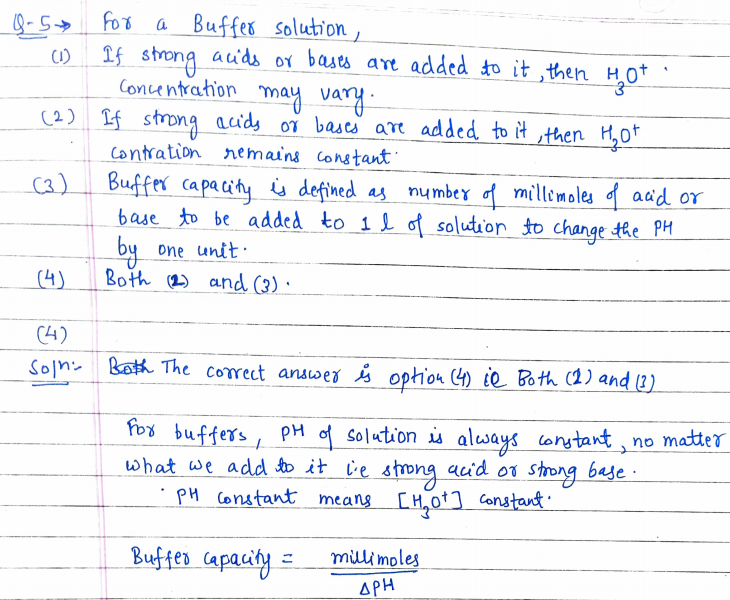 Q-5→ For a Buffer solution,
(1) If strong acids or bases are added to it, then H3O+
Concentration may vary.
(2) If strong acids or bases are added to it, then H3O+
contration remains constant.
(3) Buffer capacity is defined as number of millimoles of acid or
base to be added to 1 l of solution to change the PH
by one unit.
(4) Both (2) and (3).
(4)
Soln:- Both The correct answer is option (4) ie Both (2) and (3)
For buffers, PH of solution is always constant, no matter
what we add to it i.e strong acid or strong base.
PH constant means [H3O+] constant.
Buffer capacity = millimoles
ΔPH